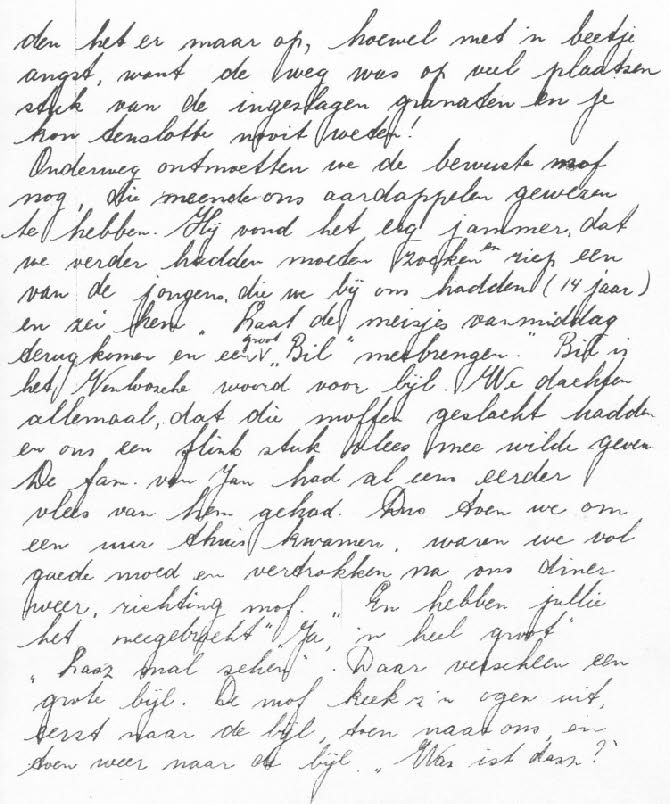 den het er maar op, hoewel met 'n beetje
angst, want de weg was op veel plaatsen
stuk van de ingeslagen granaten en je
kon tenslotte nooit weten!
Onderweg ontmoetten we de bewuste mof
nog, die meende ons aardappelen gewezen
te hebben. Hij vond het erg jammer, dat
we verder hadden moeten zoeken en riep een
van de jongens, die we bij ons hadden (14 jaar)
en zei hem „Laat de meisjes vanmiddag
terug komen en een groot „Bil" meebrengen." Bil is
het Venloosche woord voor bijl. We dachten
allemaal, dat die moffen geslacht hadden
en ons een flink stuk vlees mee wilde geven
De fam. van Jan had al eens eerder
vlees van hem gehad. Dus toen we om
een uur thuis kwamen, waren we vol
goede moed en vertrokken na ons diner
weer, richting mof. „En hebben jullie
het meegebracht" „Ja, 'n heel groot"
„Lasz mal sehen". Daar verscheen een
grote bijl. De mof keek z'n ogen uit,
eerst naar de bijl, toen naar ons, en
toen weer naar de bijl. „Was ist dasz?"